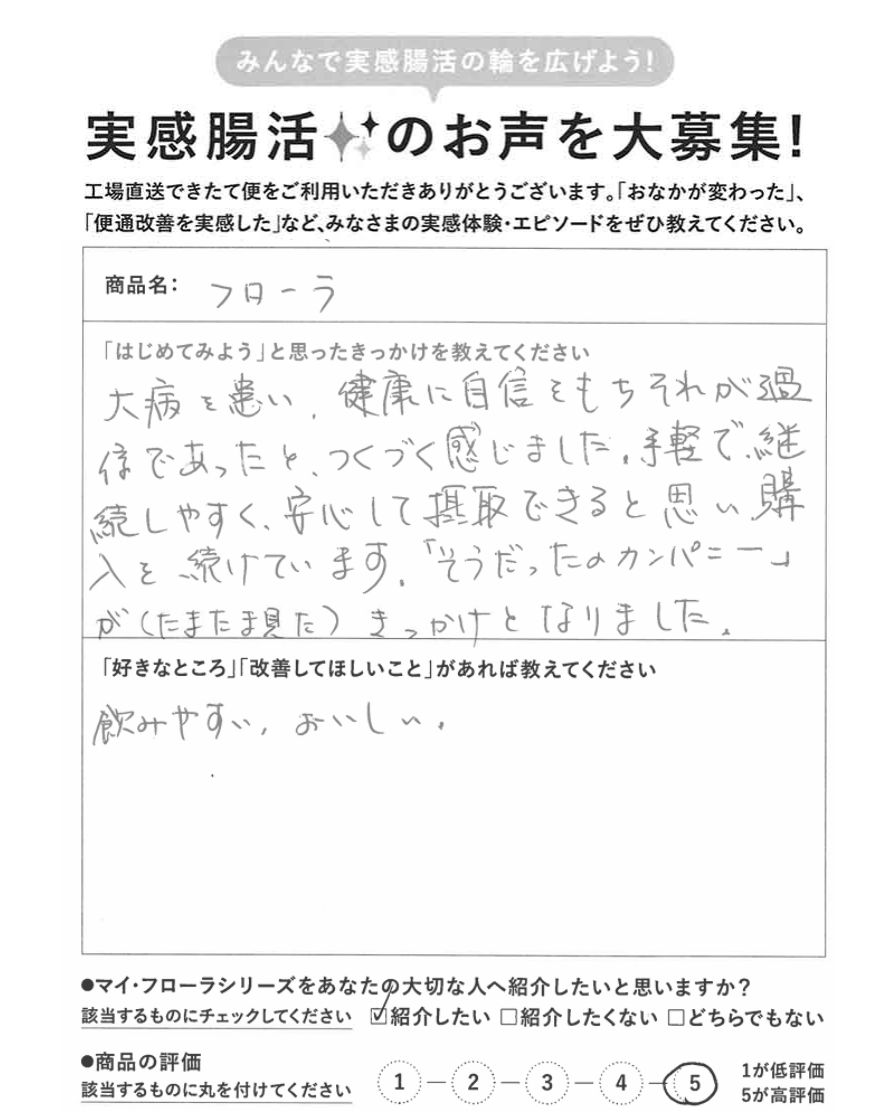 みんなで実感腸活の輪を広げよう!
実感腸活のお声を大募集!
工場直送できたて便をご利用いただきありがとうございます。「おなかが変わった」、
「便通改善を実感した」など、みなさまの実感体験・エピソードをぜひ教えてください。
商品名: フローラ
「はじめてみよう」と思ったきっかけを教えてください
大病を患い、健康に自信をもちそれが過
信であったと、つくづく感じました。手軽で、継
続しやすく、安心して摂取できると思い購
入を続けています。「そうだったのカンパニー」
が(たまたま見た)きっかけとなりました。
「好きなところ」「改善してほしいこと」があれば教えてください
飲みやすい、おいしい。
●マイ・フローラシリーズをあなたの大切な人へ紹介したいと思いますか?
該当するものにチェックしてください ☑紹介したい □紹介したくない □どちらでもない
●商品の評価
該当するものに丸を付けてください 1 — 2 — 3 — 4 — 5
1が低評価
5が高評価